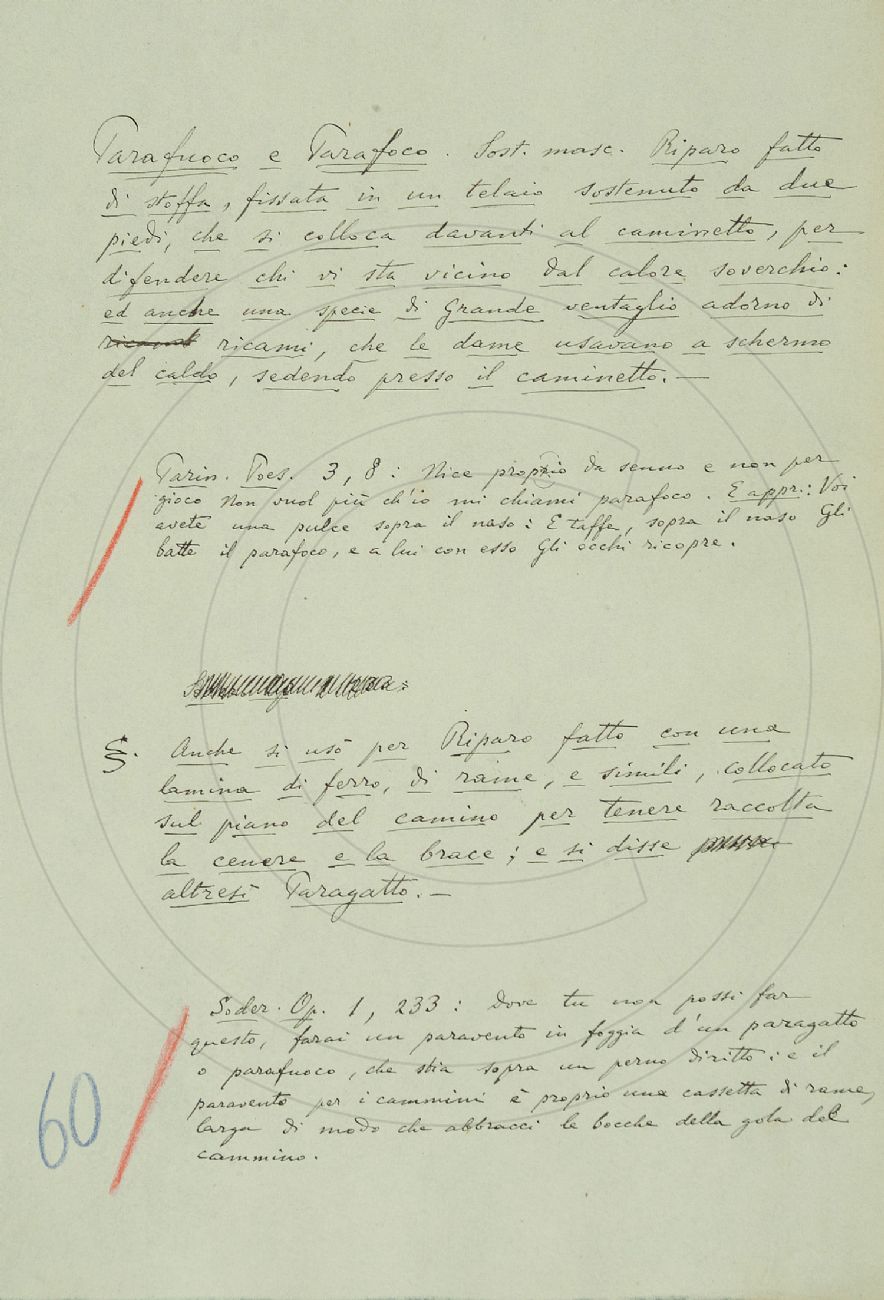 Parafuoco e Parafoco. Sost. masc. Riparo fatto
di stoffa, fissata in un telaio sostenuto da due
piedi, che si colloca davanti al caminetto, per
difendere chi vi sta vicino dal calore soverchio:
ed anche una specie di Grande ventaglio adorno di
ricami, che le dame usavano a schermo
del caldo, sedendo presso il caminetto. —
Parin. Poes. 3, 8: Nice proprio da senno e non per
gioco Non vuol più ch'io mi chiami parafoco. E appr.: Voi
avete una pulce sopra il naso: E taffe, sopra il naso Gli
batte il parafoco, e a lui con esso Gli occhi ricopre.
§. Anche si usò per Riparo fatto con una
lamina di ferro, di rame, e simili, collocato
sul piano del camino per tenere raccolta
la cenere e la brace; e si disse
altresì Paragatto. —
Soder. Op. 1, 233: Dove tu non possi far
questo, farai un paravento in foggia d'un paragatto
o parafuoco, che stia sopra un perno diritto: e il
paravento per i cammini è proprio una cassetta di rame,
larga di modo che abbracci le bocche della gola del
cammino.
60